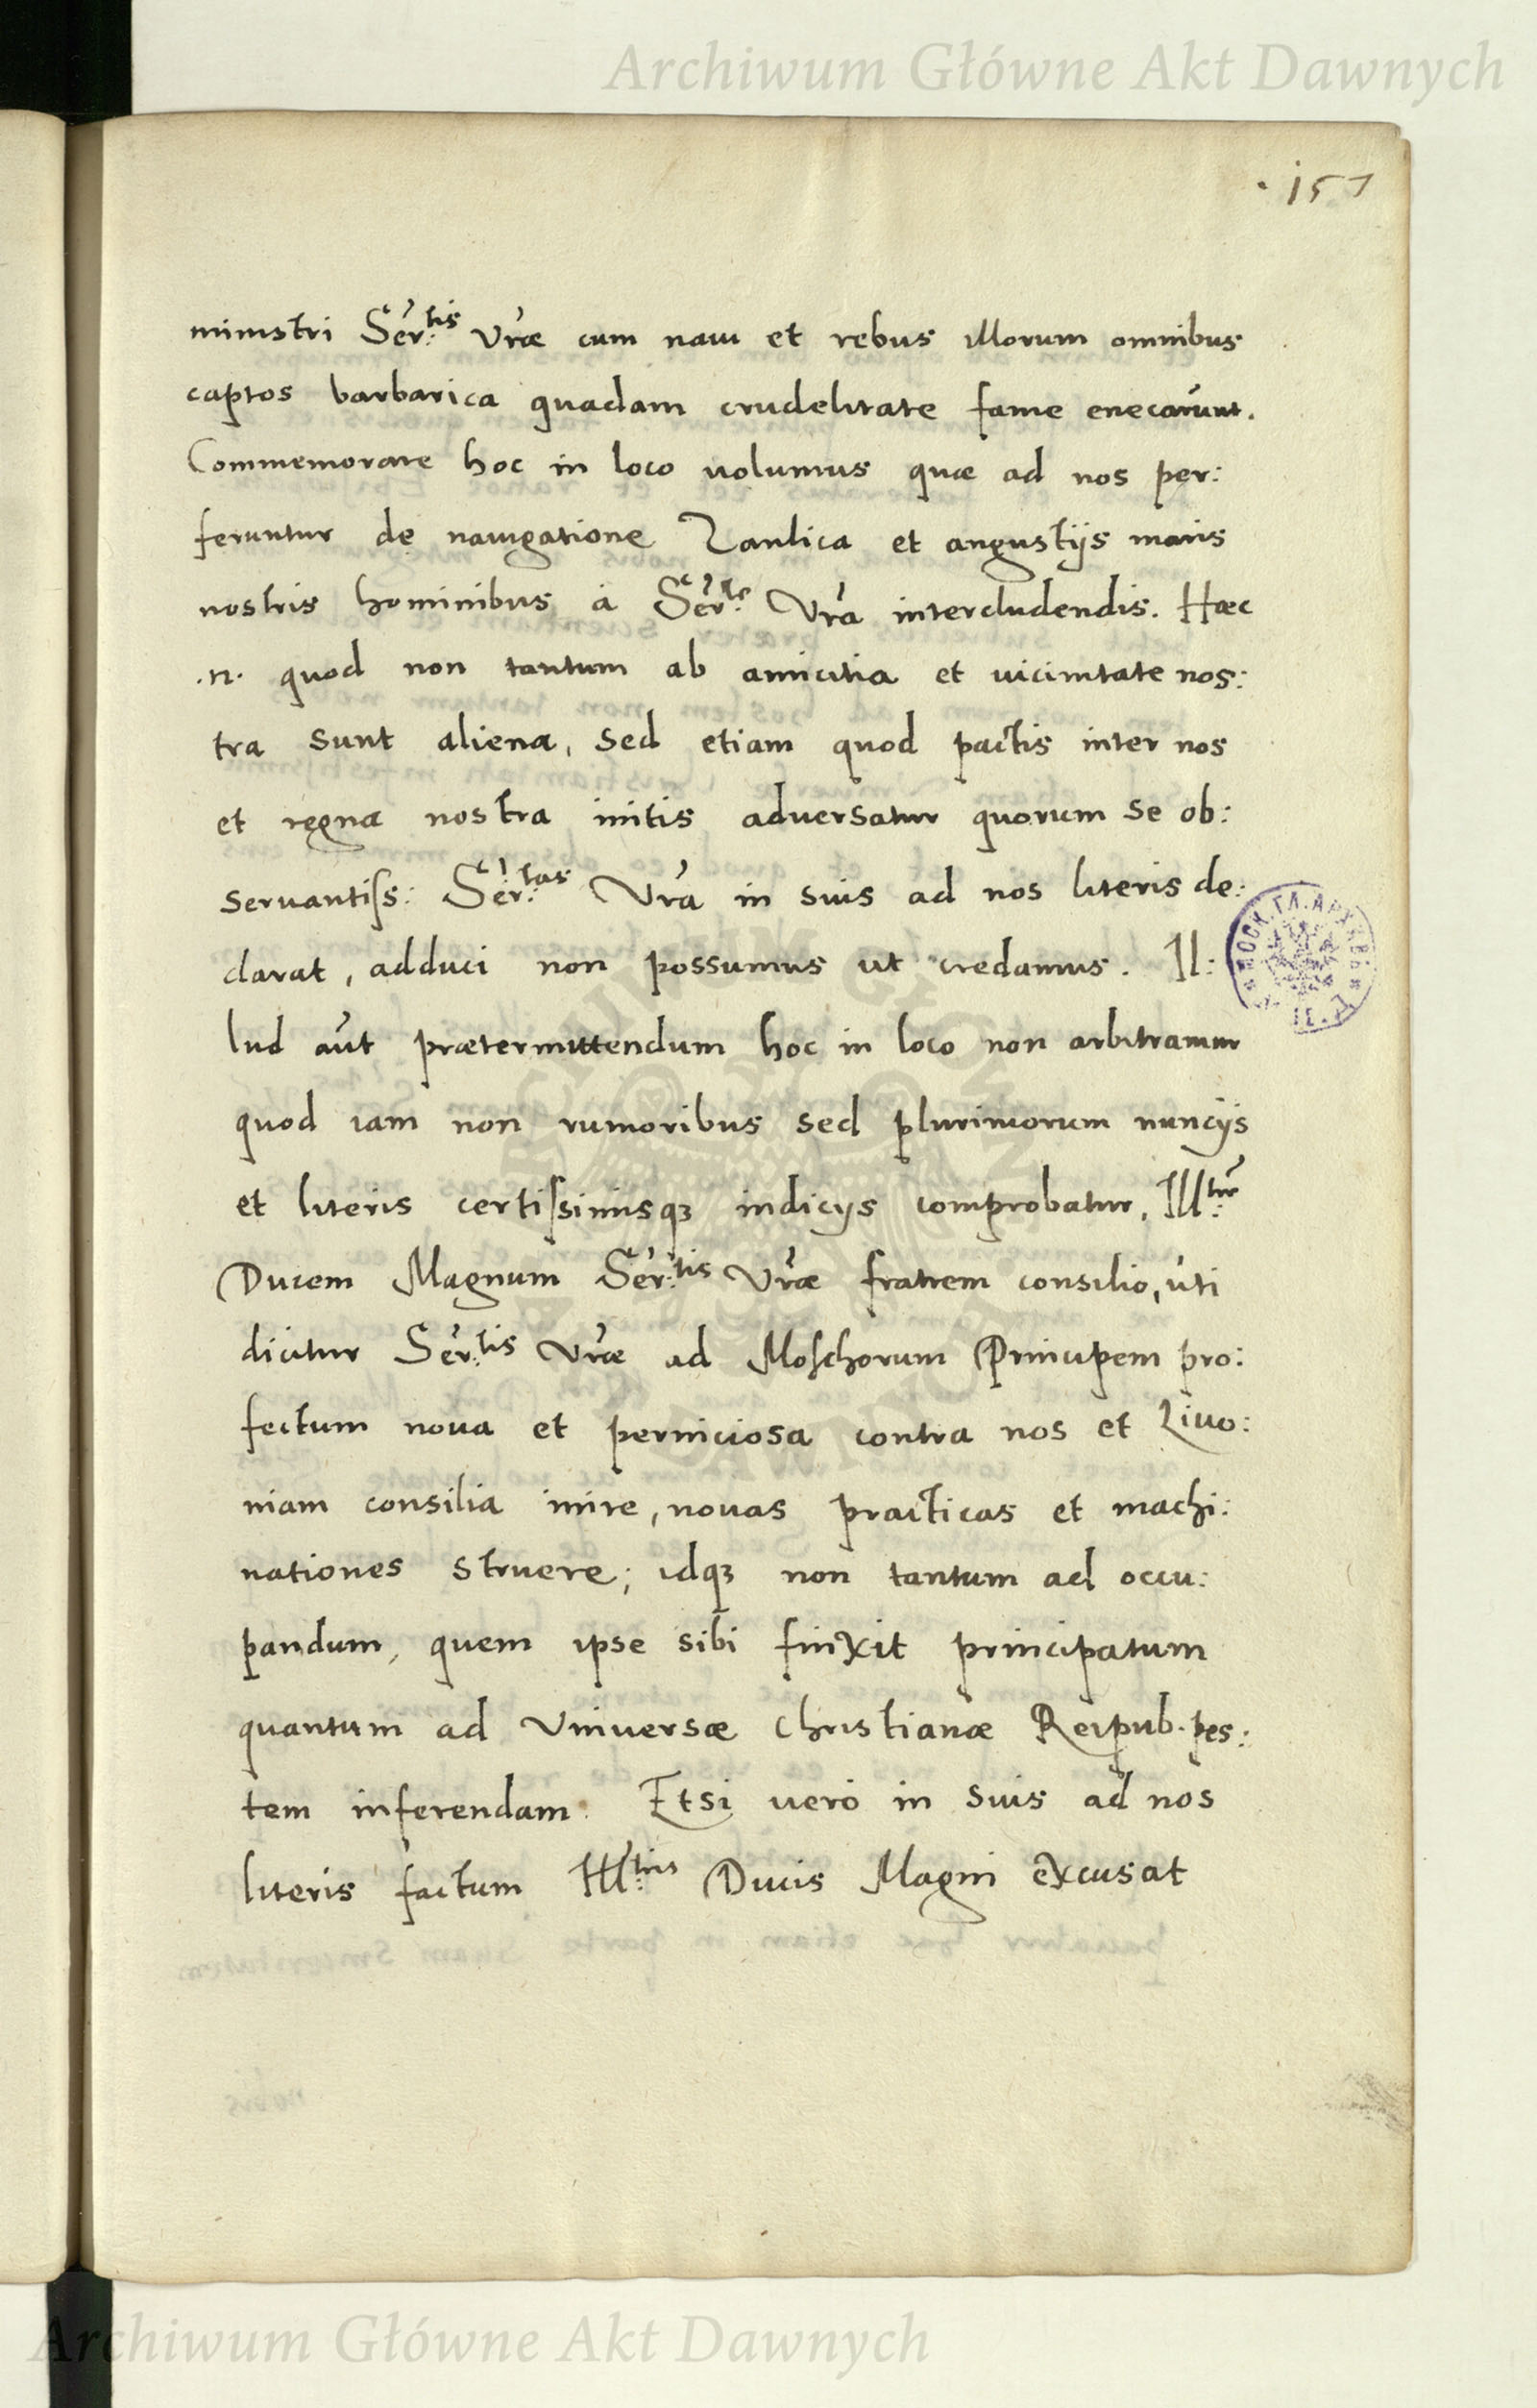 Archiwum Główne Akt Dawnych
. 157
ministri Ser:tis Vræ cum naui et rebus illorum omnibus
captos barbarica quadam crudelitate fame enecarunt.
Commemorare hoc in loco nolumus quæ ad nos per:
feruntur de nauigatione et angustijs maris
nostris hominibus à Ser:te Vra intercludendis. Hæc
.n. quod non tantum ab amicitia et uicinitate nos:
tra sunt aliena, sed etiam quod pactis inter nos
et regna nostra initis adversatur quorum se ob:
seruantiss: Ser:tas Vra in suis ad nos literis de:
clarat, adduci non possumus ut credamus. Il:
lud aut prætermittendum hoc in loco non arbitramur
quod iam non rumoribus sed plurimorum nuncijs
et literis certissimisq3 indicijs comprobatur, Ill:
Ducem Magnum Ser:tis Vræ fratrem consilio, uti
dicitur Ser:tis Vræ ad Moschorum Principem pro:
fectum noua et perniciosa contra nos et Liuo:
niam consilia inire, nouas practicas et machi:
nationes struere; idq3 non tantum ad occu:
pandum, quem ipse sibi finxit principatum
quantum ad Vniuersæ Christianæ Reipub. pes:
tem inferendam. Etsi uero in suis ad nos
literis factum Ill: Ducis Magni excusat
МОСК. ГЛ. АРХИВЪ
Archiwum Główne Akt Dawnych